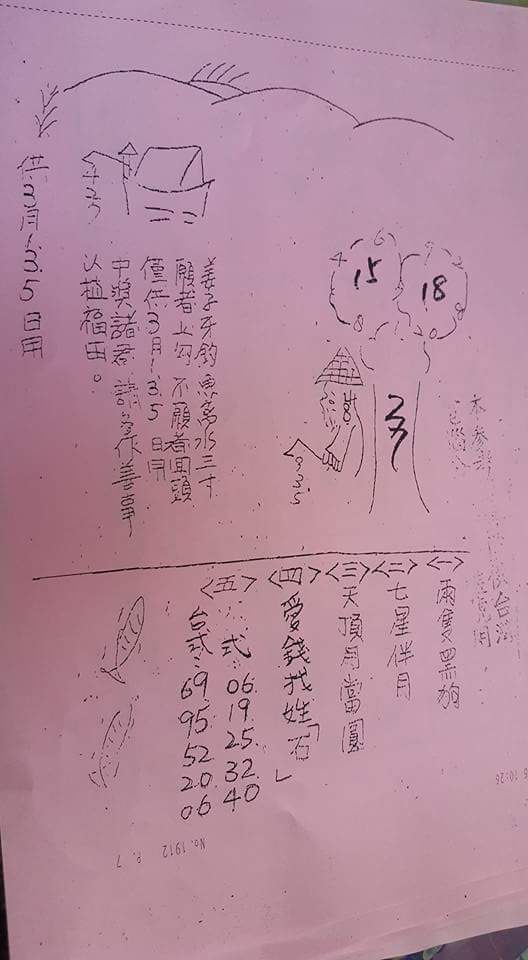 供3月1.3.5日用
姜子牙釣魚离水三寸
願者上勾不願者回頭
僅供3月1.3.5日用
中獎諸君請多作善事
以植福田。
15
18
27
<一>兩隻黑狗
<二>七星伴月
<三>天頂月當圓
<四>愛錢找姓「石」
<五>
式:06.19.25.32.40
台式:69 95 52 20 06
No. 1912 P. 7